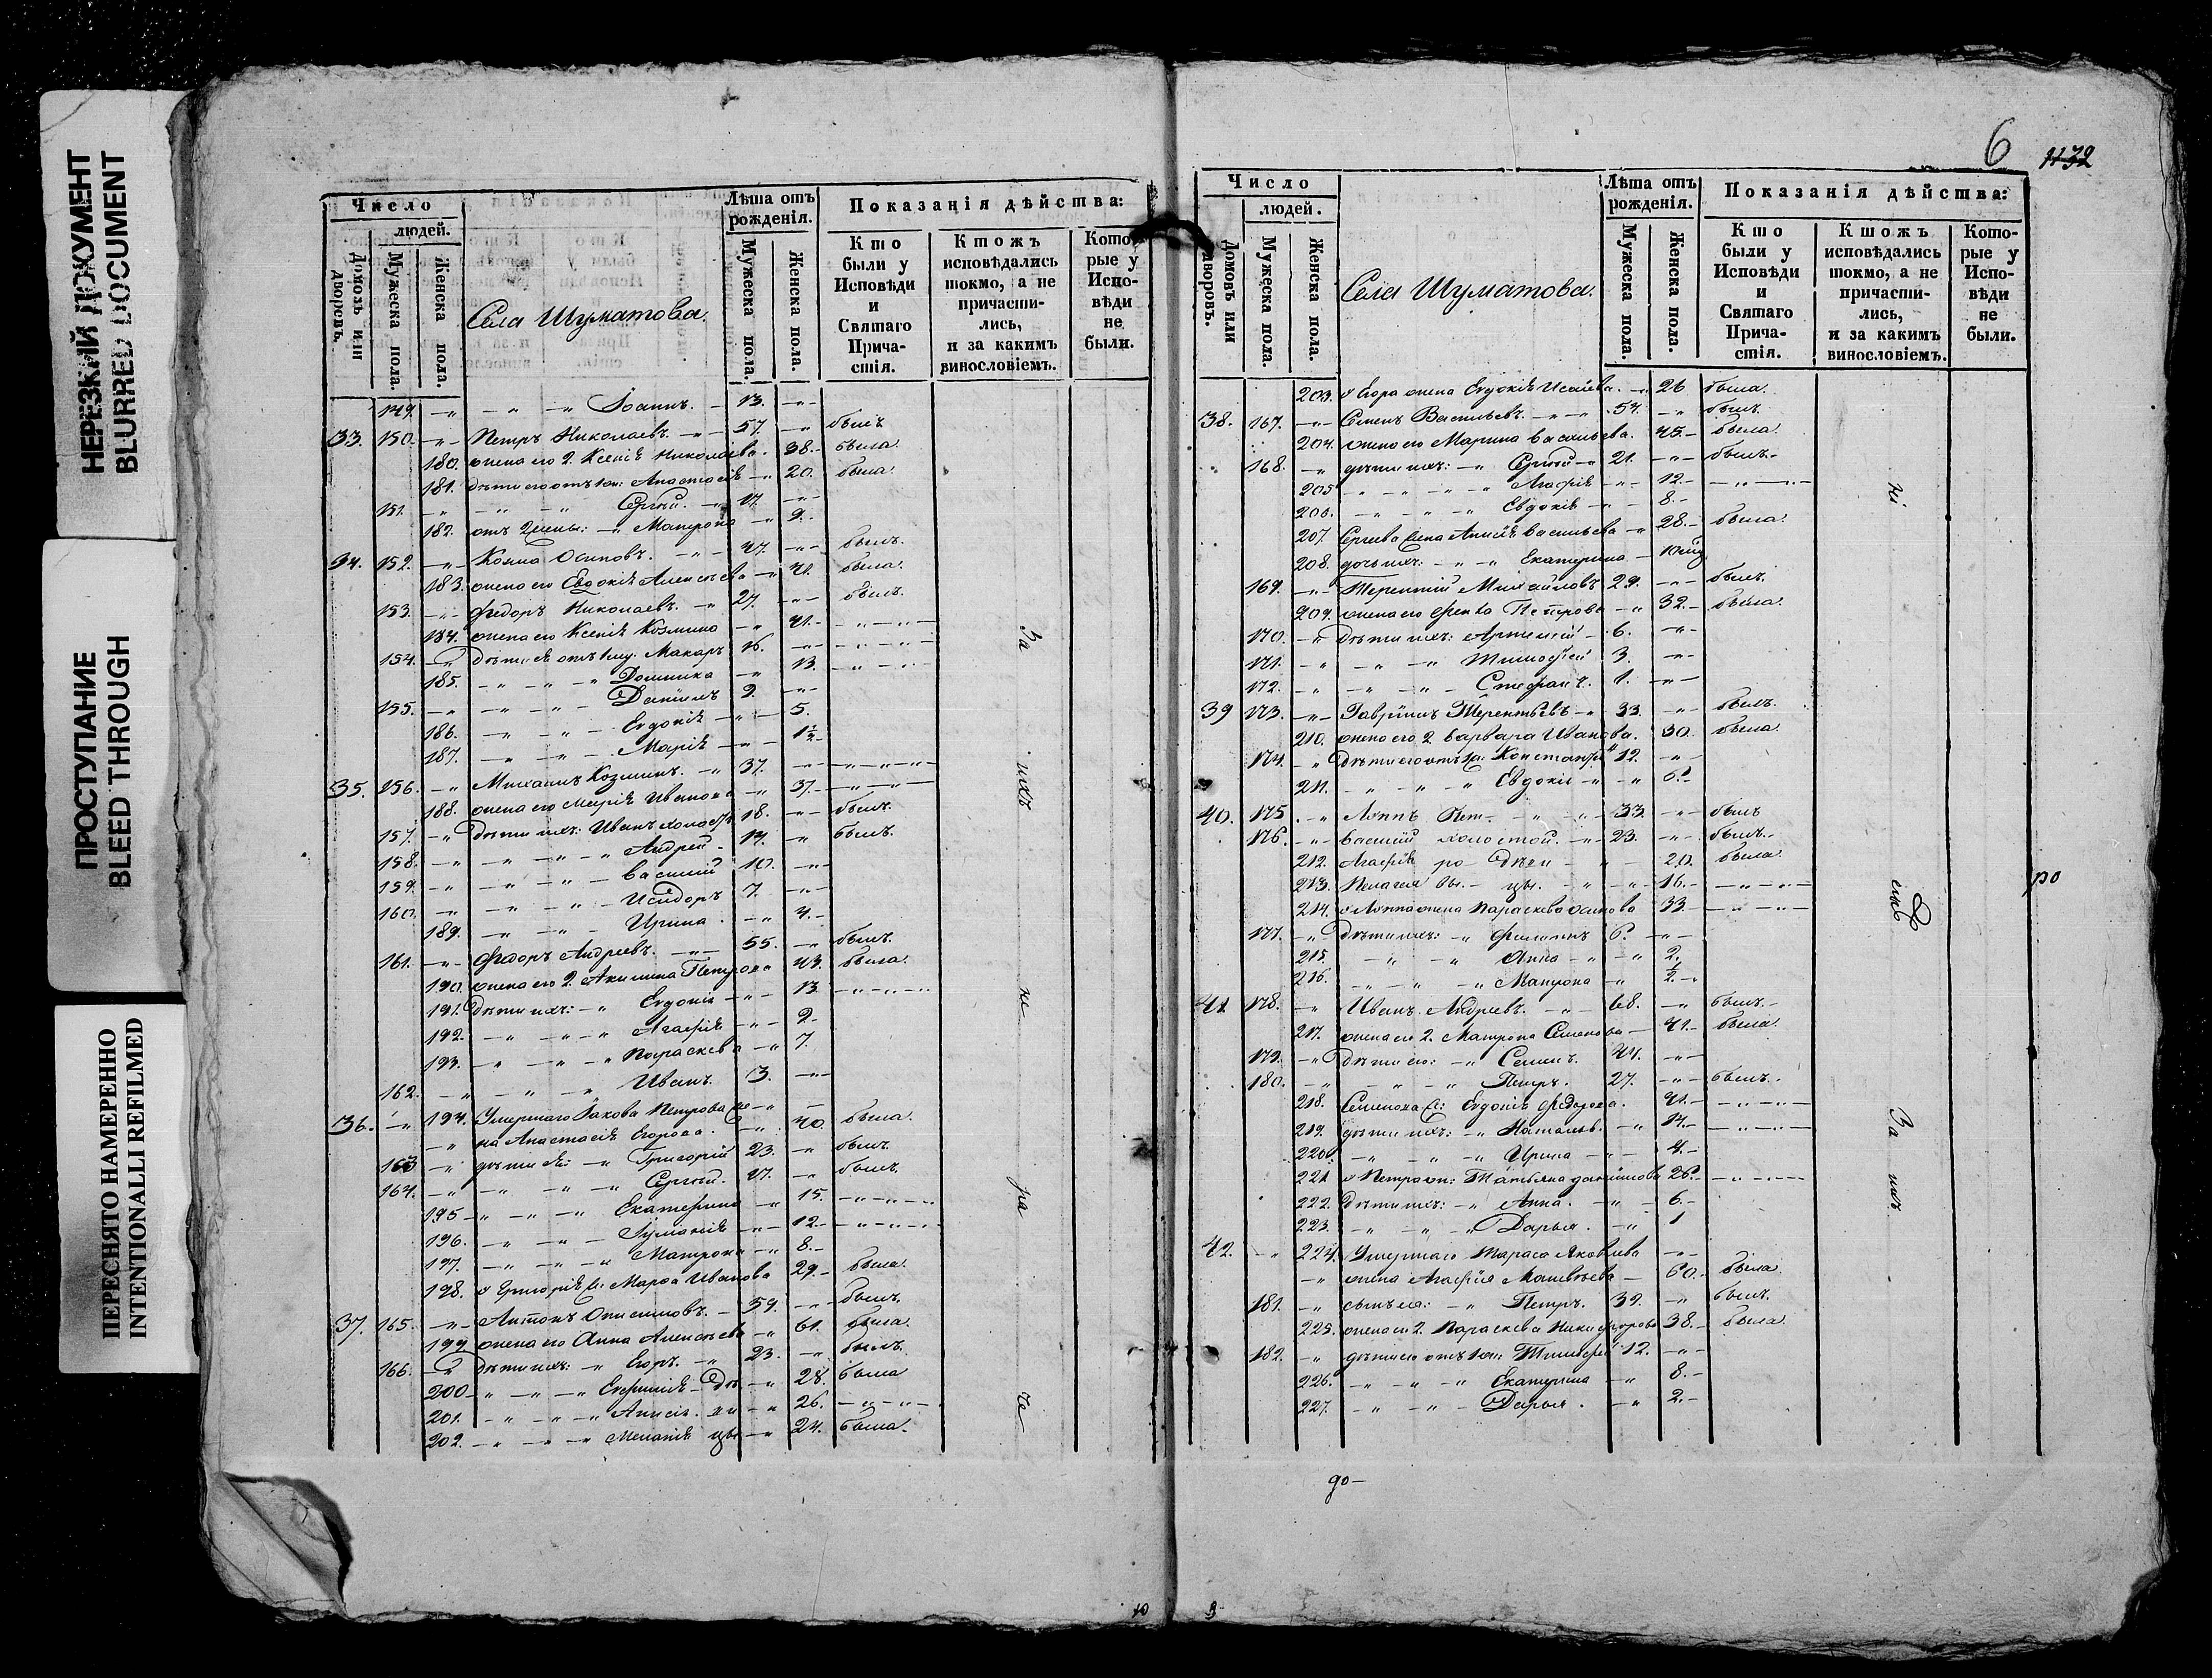 НЕРЕЗКИЙ ДОКУМЕНТ
BLURRED DOCUMENT
ПРОСТУПАНИЕ
BLEED THROUGH
ПЕРЕСНЯТО НАМЕРЕННО
INTENTIONALLI REFILMED
Число
людей.
Домовъ или дворовъ.
Мужеска пола.
Женска пола.
Села Шуматова.
Лѣта отъ рожденія.
Мужеска пола.
Женска пола.
Показанія дѣйства:
Кто были у Исповѣди и Святаго Причастія.
Ктожъ исповѣдались токмо, а не причастились, и за какимъ винословіемъ.
Которые у Исповѣди не были.
149. Іоаннъ. 13.
33. 150. Петръ Николаевъ. 57. былъ
180. жена его 2. Ксенія Николаева. 38. была
181. Анастасія 20. была
151. Сергѣй. 17.
182. Матрона 9.
34. 152. Козма Осиповъ. 47. былъ.
183. жена его Евдокія Алексѣева 41. была.
153. Ѳедоръ Николаевъ. 27. былъ.
184. жена его Ксенія Козмина 41.
154. Макаръ 16.
185. Домника 13.
155. Даніилъ 9.
186. Евдокія 5.
187. Марія 1½
35. 156. Михаилъ Козминъ. 37.
188. жена его Марія Иванова 37.
157. дѣти ихъ: Иванъ холостъ 18. былъ.
158. Андрей 14. былъ.
159. Василій 10.
160. Исидоръ 7.
189. Ирина. 4.
161. Ѳедоръ Андреевъ. 55. былъ.
190. жена его 2. Акилина Петрова 43. была.
191. дѣти ихъ: Евдокія 13.
192. Агафія 9.
193. Параскева 7.
162. Иванъ. 3.
36. 194. Умершаго Іакова Петрова же-
на Анастасія Егорова. 40. была.
163 дѣти ея: Григорій 23. былъ.
164. Сергѣй. 17. былъ.
195 Екатерина 15.
196. Іуліанія 12.
197. Матрона 8.
198. Марѳа Иванова 29. была.
37. 165. Антонъ Онисимовъ. 59. былъ.
199. жена его Анна Алексѣева 61. была.
166. дѣти ихъ: Егоръ. 23. былъ.
200. Евфимія 28. была
201. Анисія. 26.
202. Меланія 24. была.
За
ихъ
не
ра
че
6 1132
Число
людей.
Домовъ или дворовъ.
Мужеска пола
Женска пола.
Села Шуматова.
Лѣта отъ рожденія.
Мужеска пола.
Женска пола.
Показанія дѣйства:
Кто были у Исповѣди и Святаго Причастія.
Ктожъ исповѣдались токмо, а не причастились, и за какимъ винословіемъ.
Которые у Исповѣди не были.
203. у Егора жена Евдокія Исаева. 26 была.
38. 167. Семенъ Васильевъ. 54. былъ.
204. жена его Марина Васильева. 45. была.
168. дѣти ихъ: Сергѣй 21. былъ.
205 Агафія 12.
206. Евдокія 8.
207. Сергѣева жена Анисія Васильева 28. была.
208. дочь ихъ: Екатерина
169. Терентій Михайловъ 29. былъ.
209. жена его Ѳекла Петрова 32. была.
170. дѣти ихъ: Артемій 6.
171. Тимоѳей 3.
172. Стефанъ. 1.
39 173. Гавріилъ Терентьевъ 33. былъ.
210. жена его 2. Варвара Иванова. 30. была.
174. 12.
211. Евдокія 6.
40. 175 Лоппъ 33. былъ
176. Василій холостой. 23. былъ.
212. Агафія 20. была.
213. Пелагея 16.
214. у Лоппа жена Параскева Осипова 33.
177. дѣти ихъ: Филиппъ 6.
215. Анна 2.
216. Матрона ½
41 178. Иванъ Андреевъ. 68. былъ.
217. жена его 2. Матрона Семенова 41. была.
179. дѣти его: Семенъ. 44.
180. Петръ. 27. былъ.
218. Семенова Евдокія Ѳедорова. 41.
219. дѣти ихъ: Наталья. 14.
220. Ирина 4.
221 у Петра Татьяна Даніилова 26.
222. дѣти ихъ: Анна. 6.
223. Дарья. 1
42. 224. Умершаго Тараса Яковлева
жена Агафія Матвѣева 60. была.
181. сынъ ея: Петръ. 39. былъ.
225. жена его 2. Параскева Никифорова 38. была
182. Тимоѳей 12.
226. Екатерина 8.
227. Дарья. 2.
ні
емъ
За
нихъ
ро
до-